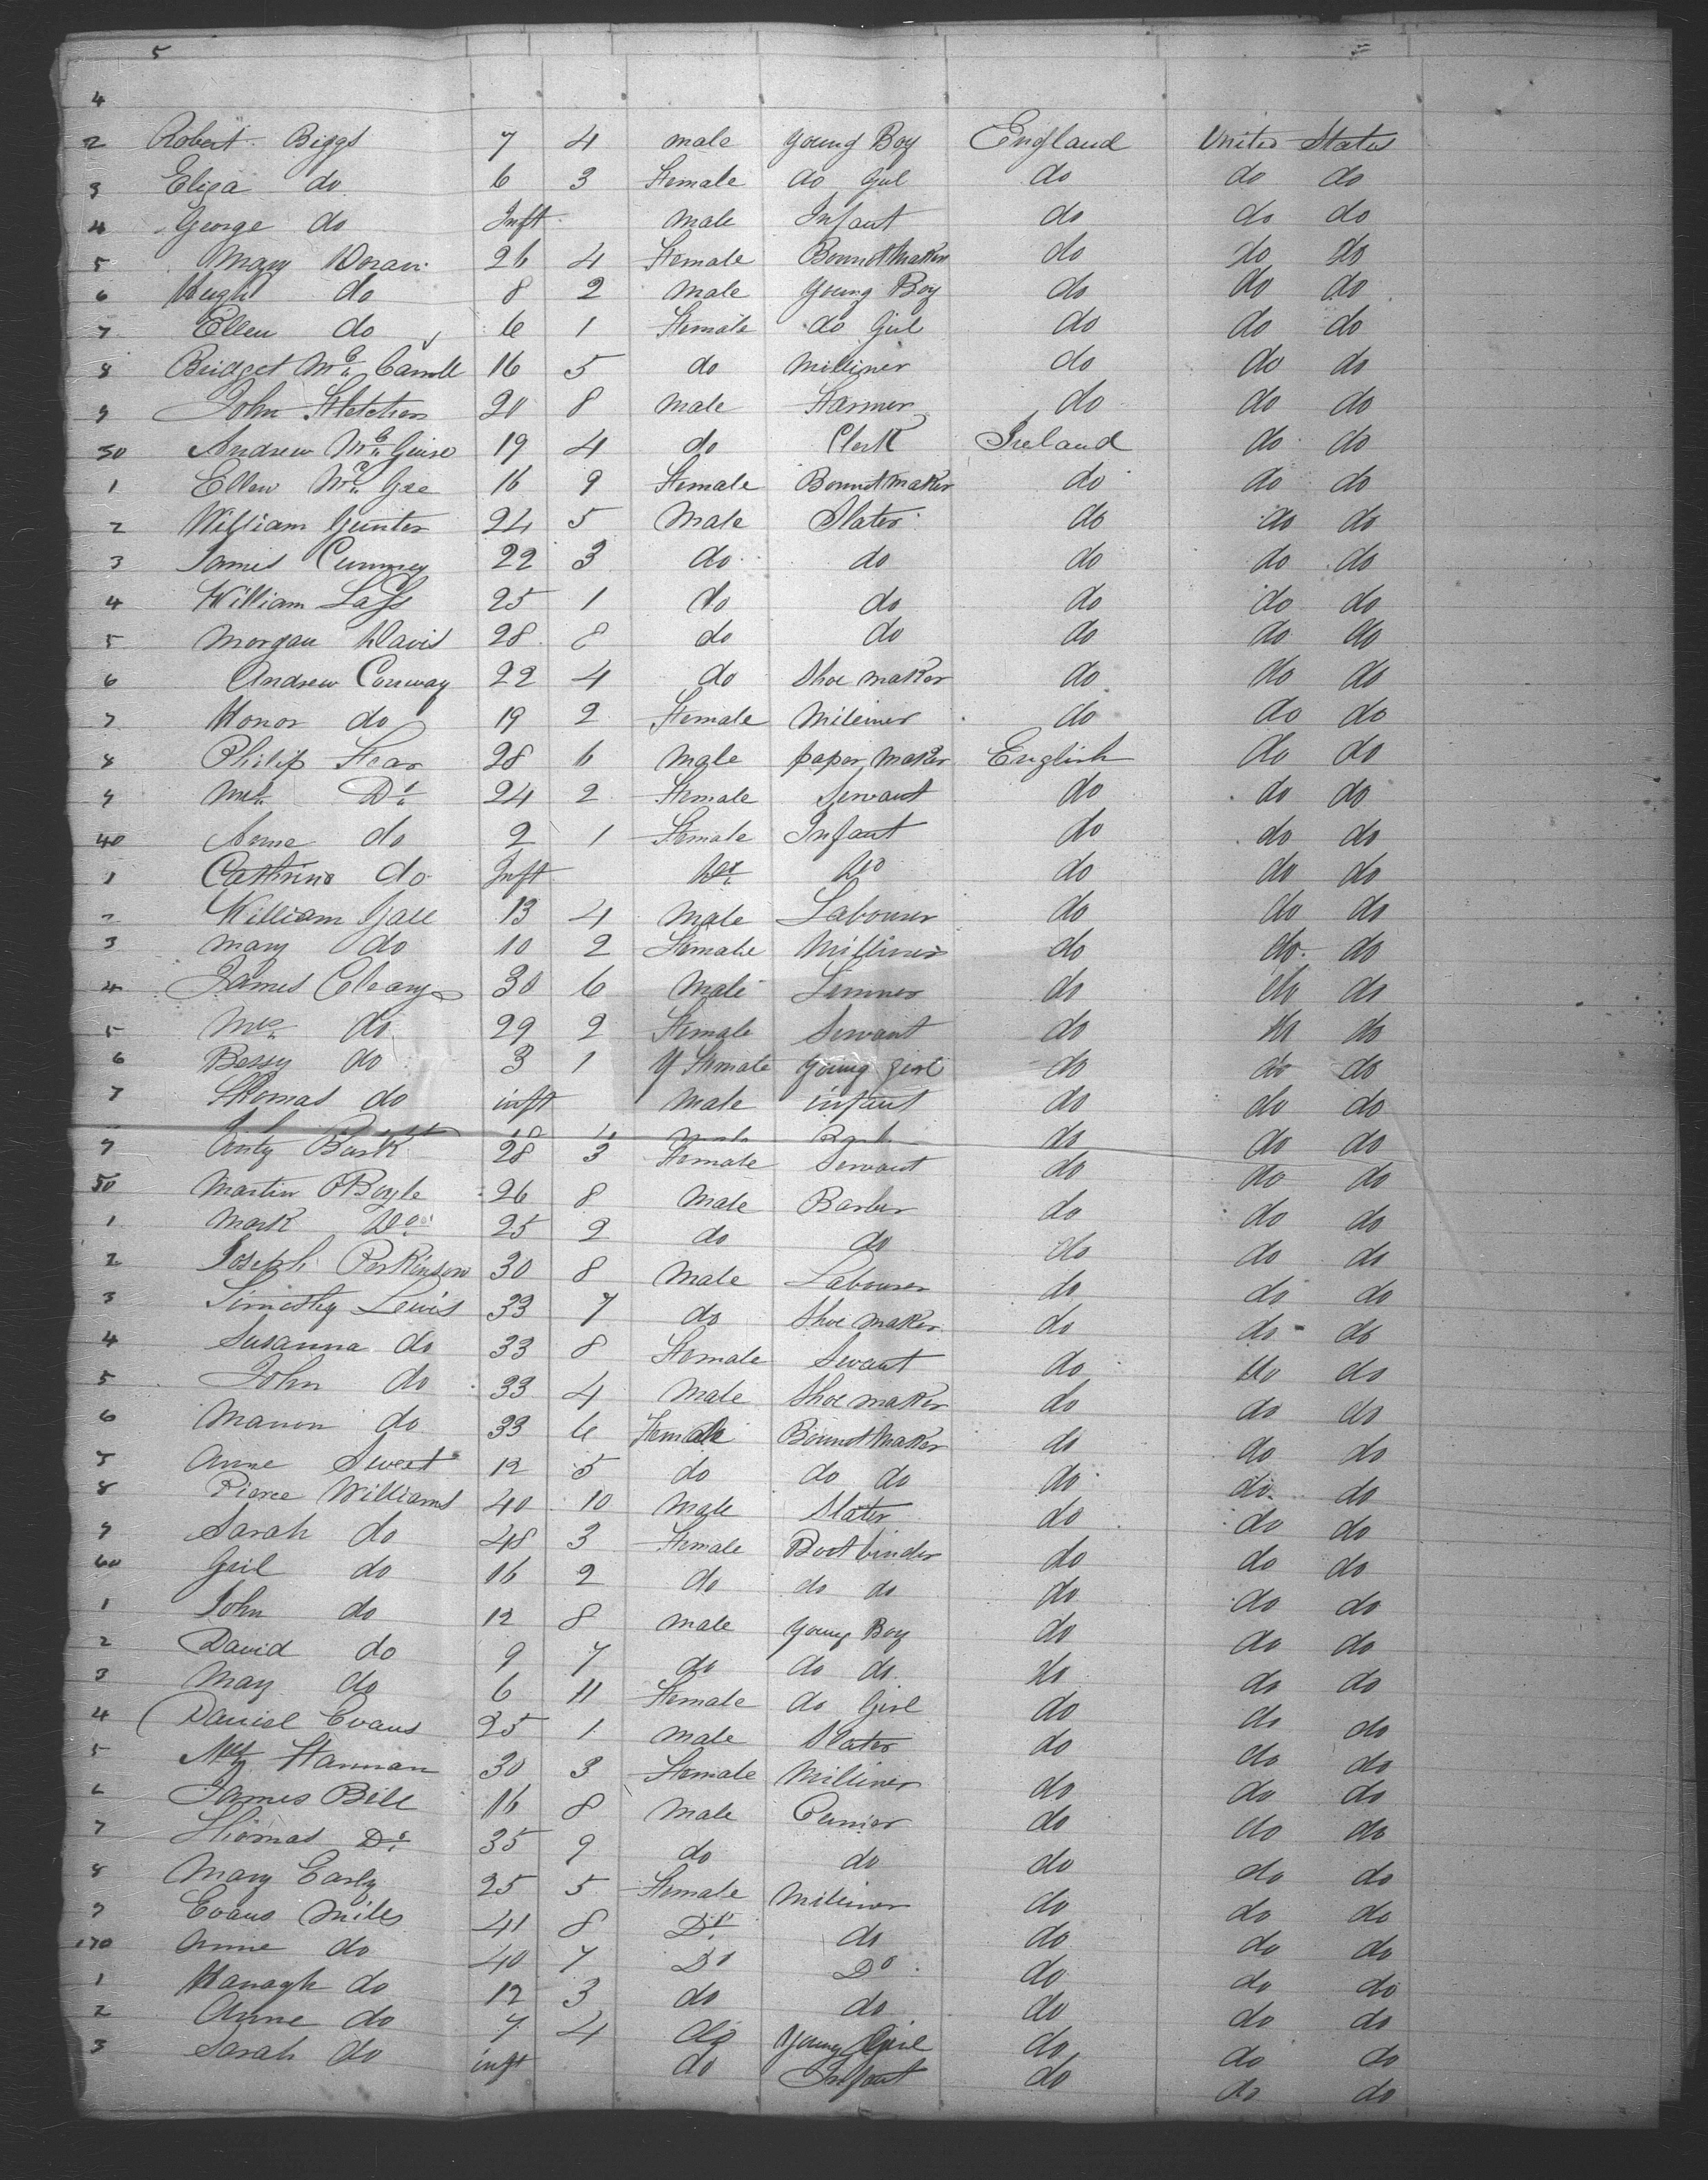 5
4
2 Robert Biggs 7 4 male young Boy England United States
3 Eliza do 6 3 Female do Girl do do do
4 George do Inft male Infant do do do
5 Mary Doran 26 4 Female Bonnet Maker do do do
6 Hugh do 8 2 male young Boy do do do
7 Ellen do 6 1 Female do Girl do do do
8 Bridget Mc Carroll 16 5 do Milliner do do do
9 John Fletcher 20 8 male Farmer do do do
30 Andrew Mc Guire 19 4 do Clerk Ireland do do
1 Ellen Mc Gee 16 9 Female Bonnet maker do do do
2 William Gunter 24 5 Male Slater do do do
3 James Cummey 22 3 do do do do do
4 William Lass 25 1 do do do do do
5 Morgan Davis 28 8 do do do do do
6 Andrew Conway 22 4 do Shoe maker do do do
7 Honor do 19 2 Female Mileiner do do do
8 Philip Fear 28 6 male paper maker English do do
9 Mrs Do 24 2 Female Servant do do do
40 Anne do 2 1 Female Infant do do do
1 Cathrine do Inft Do Do do do do
2 William Gall 13 4 Male Labourer do do do
3 Mary do 10 2 Female Milliner do do do
4 James Cleary 30 6 Male do do do
5 Mrs do 29 2 Female Servant do do do
6 Bessy do 3 1 Female young girl do do do
7 Thomas do inft Male infant do do do
do do do
9 Burk 28 3 Female Servant do do do
50 Martin OBoyle 26 8 Male Barber do do do
1 Mark Do 25 2 do do do do do
2 Joseph Perkinson 30 8 Male Labourer do do do
3 Timothy Lewis 33 7 do Shoe maker do do do
4 Susanna do 33 8 Female Sevant do do do
5 John do 33 4 Male Shoe maker do do do
6 do 33 6 Female Bonnet Maker do do do
7 Anne Sweet 12 5 do do do do do do
8 Pierce Williams 40 10 Male Slater do do do
9 Sarah do 48 3 Female Boot binder do do do
60 do 16 2 do do do do do do
1 John do 12 8 male young Boy do do do
2 David do 9 7 do do do do do do
3 May do 6 11 Female do Girl do do do
4 Daniel Evans 25 1 male Slater do do do
5 Hannan 30 3 Female Milliner do do do
6 James Bell 16 8 Male do do do
7 Thomas Do 35 9 do do do do do
8 Mary Early 25 5 Female Mileiner do do do
9 Evans Miles 41 8 Do do do do do
170 Anne do 40 7 Do Do do do do
1 Hanagh do 12 3 do do do do do
2 Anne do 7 4 do Young Girl do do do
3 Sarah do inft do Infant do do do